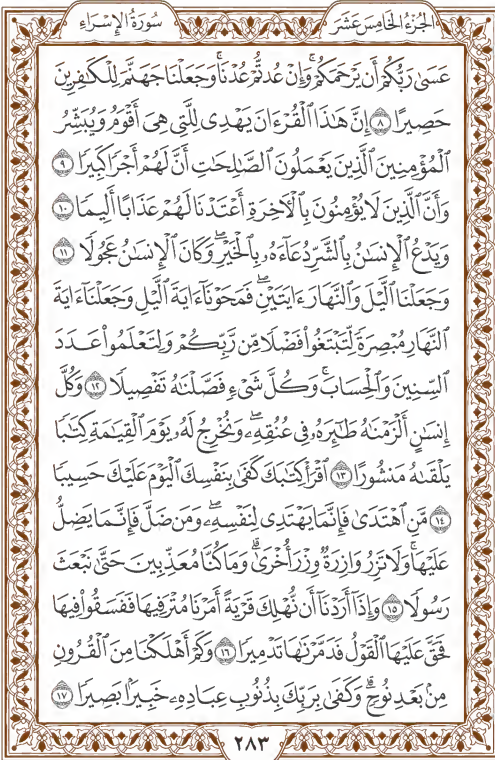 الجُزْءُ الخَامِسَ عَشَرَ
سُورَةُ الإِسْرَاءِ
عَسَىٰ رَبُّكُمْ أَن يَرْحَمَكُمْ ۚ وَإِنْ عُدتُّمْ عُدْنَا ۘ وَجَعَلْنَا جَهَنَّمَ لِلْكَـٰفِرِينَ
حَصِيرًا ٨ إِنَّ هَـٰذَا ٱلْقُرْءَانَ يَهْدِى لِلَّتِى هِىَ أَقْوَمُ وَيُبَشِّرُ
ٱلْمُؤْمِنِينَ ٱلَّذِينَ يَعْمَلُونَ ٱلصَّـٰلِحَـٰتِ أَنَّ لَهُمْ أَجْرًا كَبِيرًا ٩
وَأَنَّ ٱلَّذِينَ لَا يُؤْمِنُونَ بِٱلْـَٔاخِرَةِ أَعْتَدْنَا لَهُمْ عَذَابًا أَلِيمًا ١٠
وَيَدْعُ ٱلْإِنسَـٰنُ بِٱلشَّرِّ دُعَآءَهُۥ بِٱلْخَيْرِ ۖ وَكَانَ ٱلْإِنسَـٰنُ عَجُولًا ١١
وَجَعَلْنَا ٱلَّيْلَ وَٱلنَّهَارَ ءَايَتَيْنِ ۖ فَمَحَوْنَآ ءَايَةَ ٱلَّيْلِ وَجَعَلْنَآ ءَايَةَ
ٱلنَّهَارِ مُبْصِرَةً لِّتَبْتَغُوا۟ فَضْلًا مِّن رَّبِّكُمْ وَلِتَعْلَمُوا۟ عَدَدَ
ٱلسِّنِينَ وَٱلْحِسَابَ ۚ وَكُلَّ شَىْءٍ فَصَّلْنَـٰهُ تَفْصِيلًا ١٢ وَكُلَّ
إِنسَـٰنٍ أَلْزَمْنَـٰهُ طَـٰٓئِرَهُۥ فِى عُنُقِهِۦ ۖ وَنُخْرِجُ لَهُۥ يَوْمَ ٱلْقِيَـٰمَةِ كِتَـٰبًا
يَلْقَىٰهُ مَنشُورًا ١٣ ٱقْرَأْ كِتَـٰبَكَ كَفَىٰ بِنَفْسِكَ ٱلْيَوْمَ عَلَيْكَ حَسِيبًا
١٤ مَّنِ ٱهْتَدَىٰ فَإِنَّمَا يَهْتَدِى لِنَفْسِهِۦ ۖ وَمَن ضَلَّ فَإِنَّمَا يَضِلُّ
عَلَيْهَا ۚ وَلَا تَزِرُ وَازِرَةٌ وِزْرَ أُخْرَىٰ ۗ وَمَا كُنَّا مُعَذِّبِينَ حَتَّىٰ نَبْعَثَ
رَسُولًا ١٥ وَإِذَآ أَرَدْنَآ أَن نُّهْلِكَ قَرْيَةً أَمَرْنَا مُتْرَفِيهَا فَفَسَقُوا۟ فِيهَا
فَحَقَّ عَلَيْهَا ٱلْقَوْلُ فَدَمَّرْنَـٰهَا تَدْمِيرًا ١٦ وَكَمْ أَهْلَكْنَا مِنَ ٱلْقُرُونِ
مِنۢ بَعْدِ نُوحٍ ۗ وَكَفَىٰ بِرَبِّكَ بِذُنُوبِ عِبَادِهِۦ خَبِيرًۢا بَصِيرًا ١٧
٢٨٣